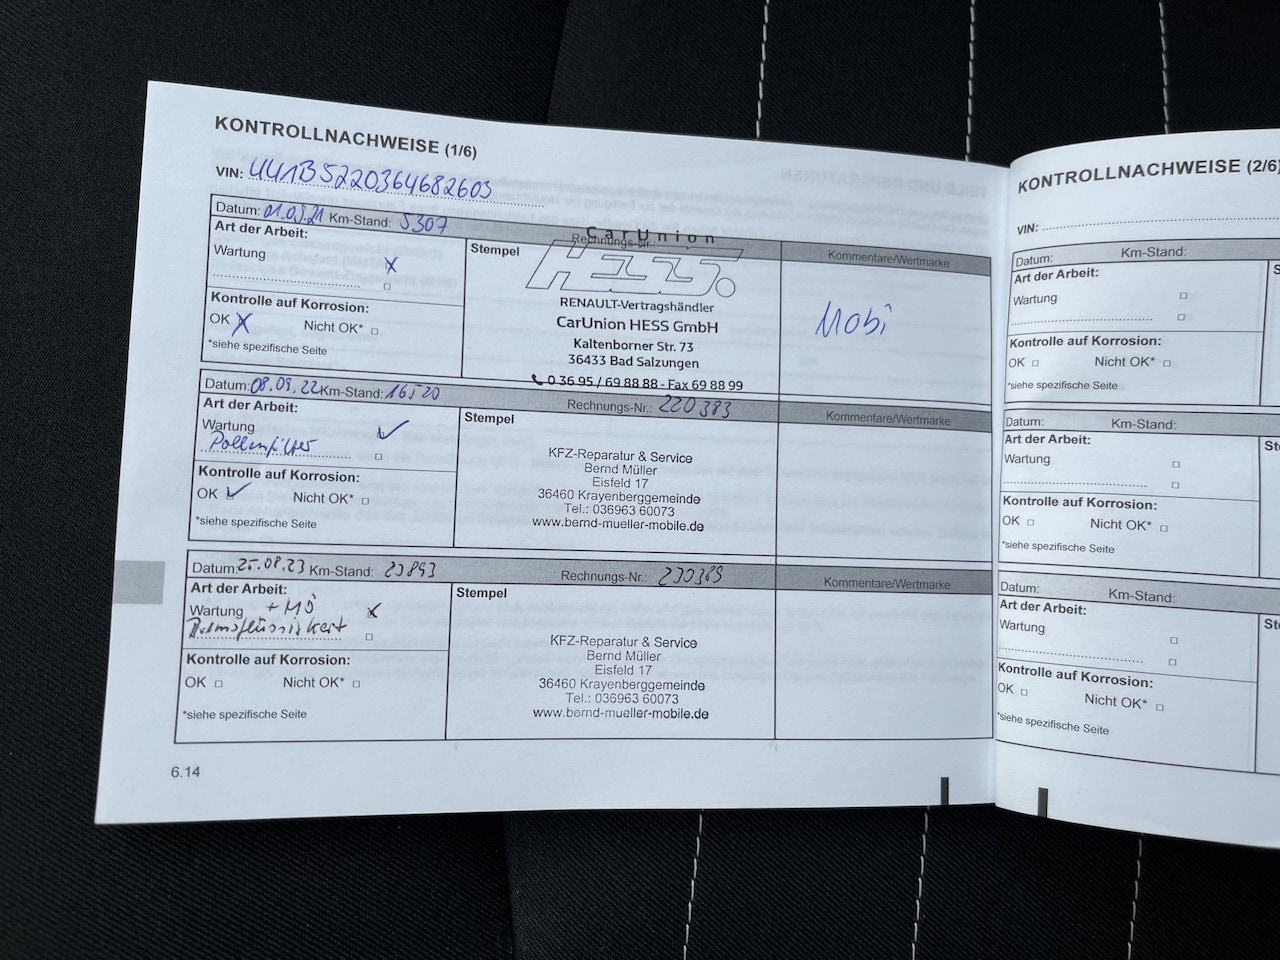 KONTROLLNACHWEISE (1/6)
VIN: UU1B5220364682603
Datum: 01.09.21 Km-Stand: 5307 Rechnungs-Nr.:
Art der Arbeit:
Wartung X
Kontrolle auf Korrosion:
OK X Nicht OK*
*siehe spezifische Seite
Stempel
CarUnion
HESS.
RENAULT-Vertragshändler
CarUnion HESS GmbH
Kaltenborner Str. 73
36433 Bad Salzungen
0 36 95 / 69 88 88 - Fax 69 88 99
Kommentare/Wertmarke
Mobi
Datum: 08.09.22 Km-Stand: 16520 Rechnungs-Nr.: 220383
Art der Arbeit:
Wartung
Pollenfilter
Kontrolle auf Korrosion:
OK Nicht OK*
*siehe spezifische Seite
Stempel
KFZ-Reparatur & Service
Bernd Müller
Eisfeld 17
36460 Krayenberggemeinde
Tel.: 036963 60073
www.bernd-mueller-mobile.de
Kommentare/Wertmarke
Datum: 25.08.23 Km-Stand: 23893 Rechnungs-Nr.: 230389
Art der Arbeit:
Wartung + MÖ X
Bremsflüssigkeit
Kontrolle auf Korrosion:
OK Nicht OK*
*siehe spezifische Seite
Stempel
KFZ-Reparatur & Service
Bernd Müller
Eisfeld 17
36460 Krayenberggemeinde
Tel.: 036963 60073
www.bernd-mueller-mobile.de
Kommentare/Wertmarke
6.14
KONTROLLNACHWEISE (2/6)
VIN:
Datum: Km-Stand:
Art der Arbeit:
Wartung
Kontrolle auf Korrosion:
OK Nicht OK*
*siehe spezifische Seite
Datum: Km-Stand:
Art der Arbeit:
Wartung
Kontrolle auf Korrosion:
OK Nicht OK*
*siehe spezifische Seite
Datum: Km-Stand:
Art der Arbeit:
Wartung
Kontrolle auf Korrosion:
OK Nicht OK*
*siehe spezifische Seite